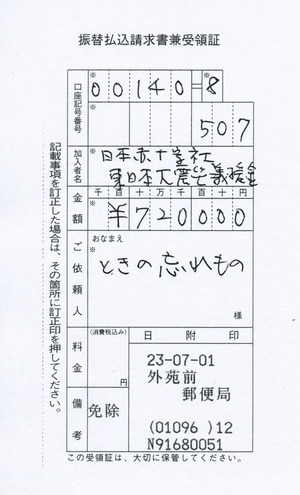 振替払込請求書兼受領証
口座記号番号
※
00140=8
※
507
加入者名
※
日本赤十字社
東日本大震災義援金
金額
千百十万千百十円
※
¥720000
ご依頼人
おなまえ
※
ときの忘れもの
様
料金
(消費税込み)
円
日附印
23-07-01
外苑前
郵便局
(01096 )12
N91680051
備考
免除
記載事項を訂正した場合は、その箇所に訂正印を押してください。
この受領証は、大切に保管してください。